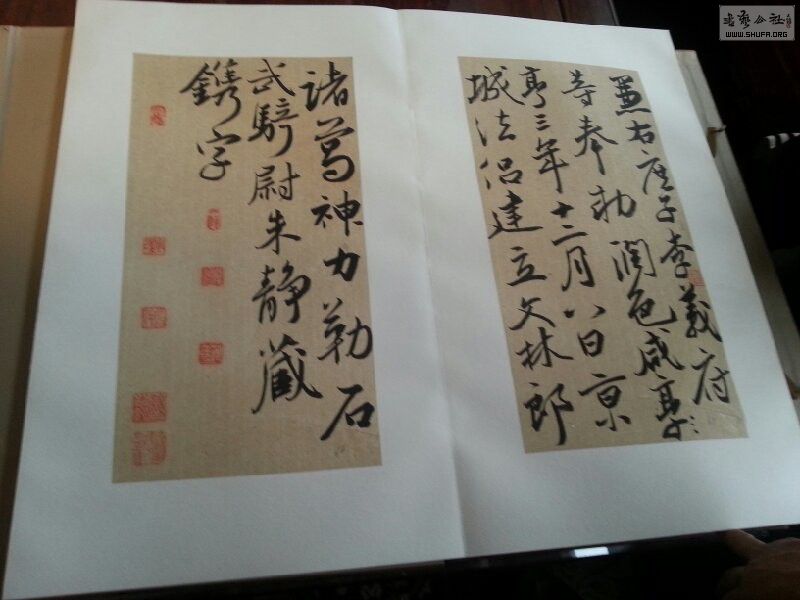 兼右庶子李義府
等奉勑潤色咸亨
亨三年十二月八日京
城法侣建立文林郎
諸葛神力勒石
武騎尉朱静藏
鐫字
书艺公社
WWW.SHUFA.ORG